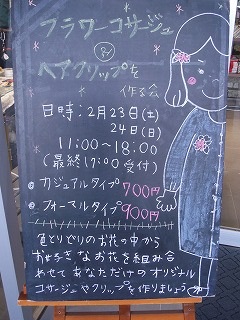 フラワーコサージュ
&
ヘアクリップを
作る会
日時:2月23日(土)
24日(日)
11:00~18:00
(最終17:00受付)
カジュアルタイプ 700円
フォーマルタイプ 900円
色とりどりのお花の中から
お好きなお花を組み合
わせてあなただけのオリジナル
コサージュやクリップを作りましょう